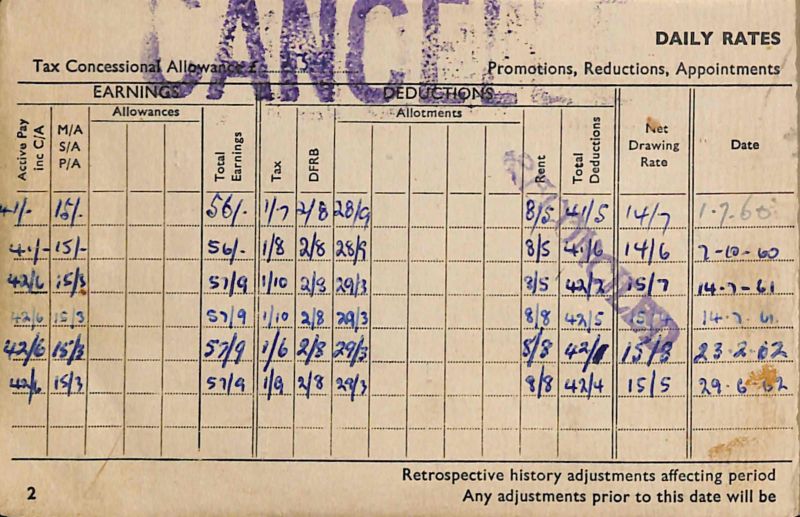 CANCEL
DAILY RATES
Tax Concessional Allowance £
Promotions, Reductions, Appointments
EARNINGS DEDUCTIONS
Allowances Allotments
Active Pay inc C/A M/A S/A P/A Total Earnings Tax DFRB Rent Total Deductions Net Drawing Rate Date
41/- 15/- 56/- 1/7 2/8 28/9 8/5 41/5 14/7 1-7-60
41/- 15/- 56/- 1/8 2/8 28/9 8/5 41/6 14/6 7-10-60
42/6 15/3 57/9 1/10 2/8 29/3 8/5 42/2 15/7 14-7-61
42/6 15/3 57/9 1/10 2/8 29/3 8/8 42/5 15/4 14-7-61
42/6 15/3 57/9 1/6 2/8 29/3 8/8 42/1 15/8 23-2-62
42/6 15/3 57/9 1/9 2/8 29/3 8/8 42/4 15/5 29-6-62
RECONCILED
Retrospective history adjustments affecting period
2 Any adjustments prior to this date will be